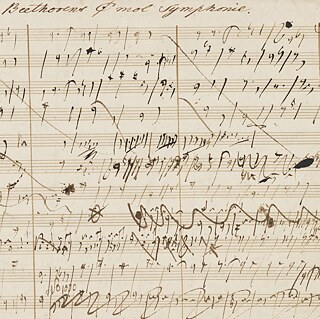 Beethovens C mol Symphonie.